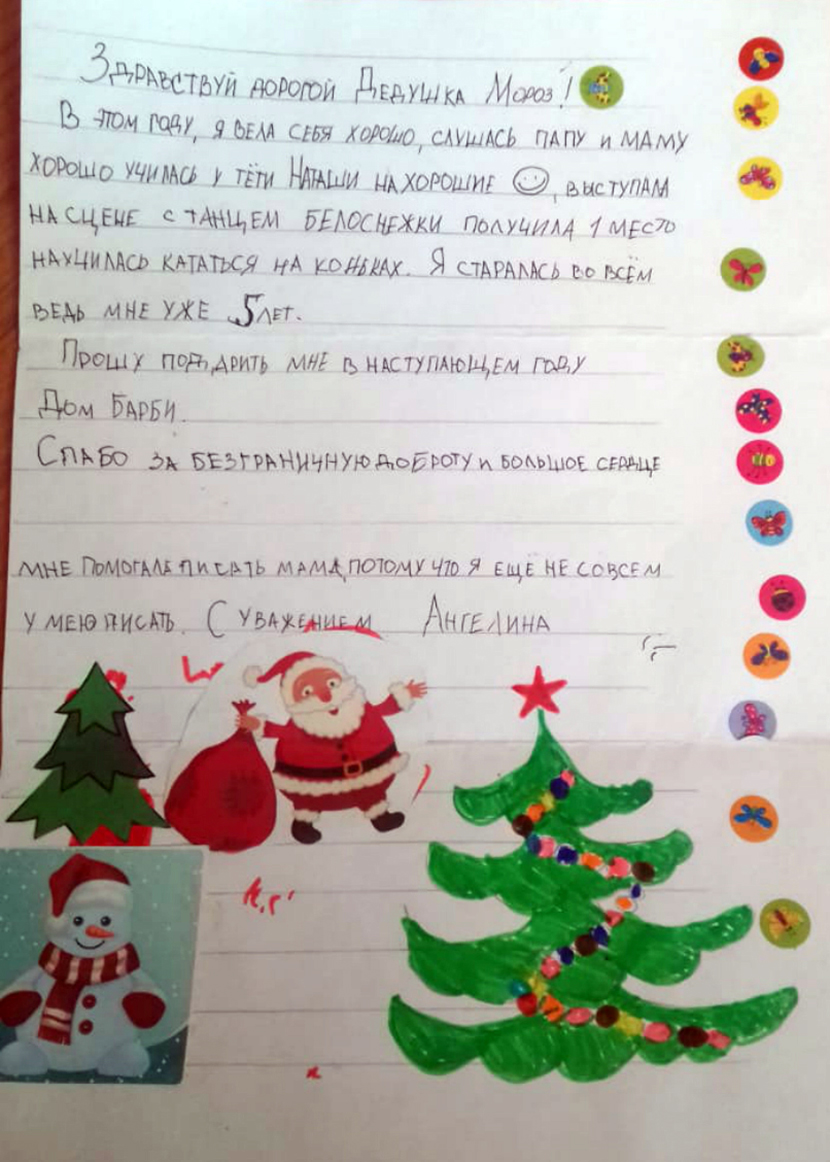 Здравствуй дорогой Дедушка Мороз!
В этом году, я вела себя хорошо, слушась папу и маму
хорошо училась у тёти Наташи на хорошие ☺, выступал
на сцене с танцем Белоснежки получила 1 место
научилась кататься на коньках. Я старалась во всём
ведь мне уже 5 лет.
Прошу подарить мне в наступающем году
Дом Барби.
Спабо за безграничную доброту и большое сердце
мне помогала писать мама, потому что я ещё не совсем
умею писать. С уважением Ангелина